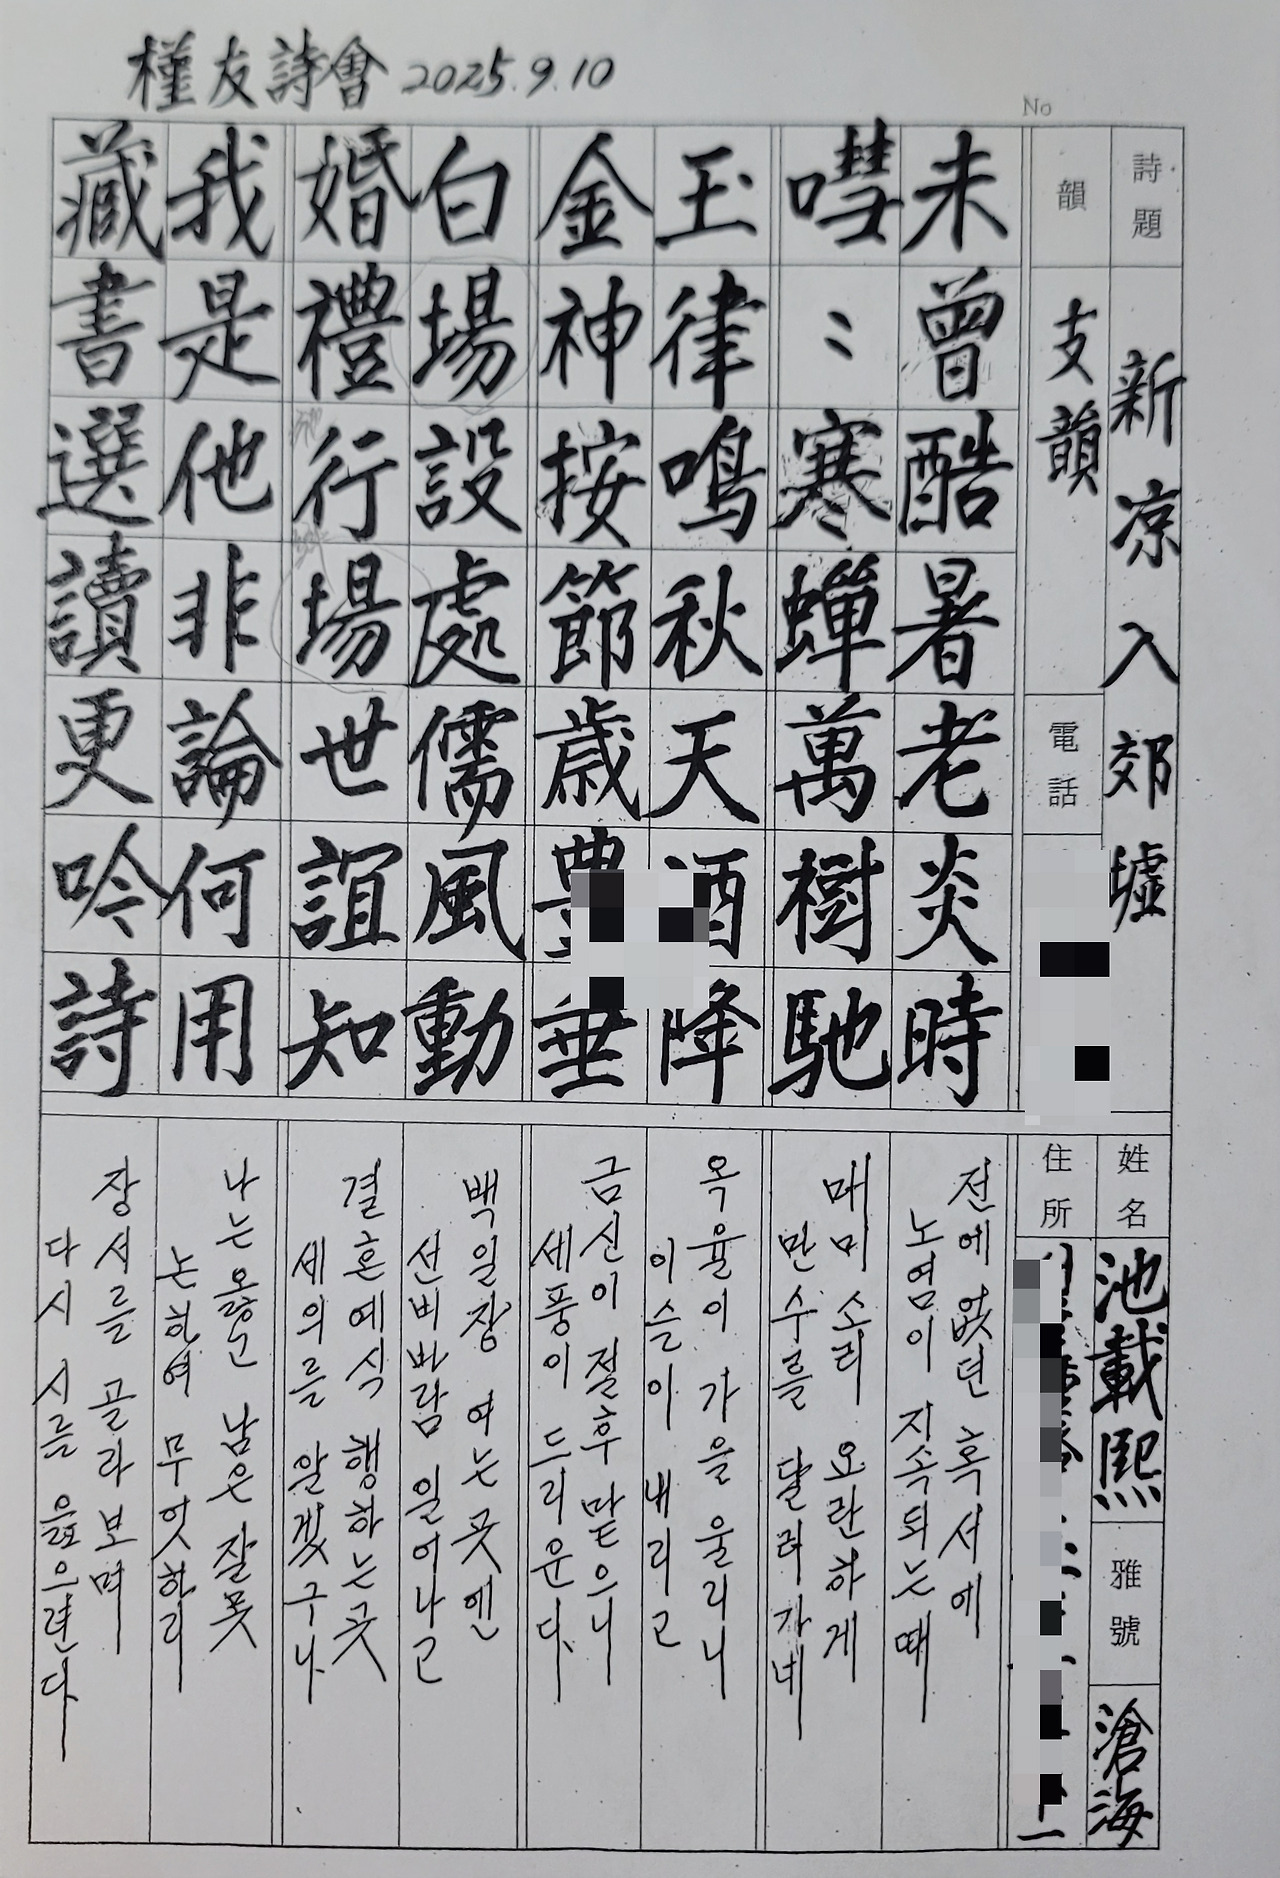 槿友詩會 2025.9.10
No
詩題
新凉入郊墟
韻
支韻
電話
未曾酷暑老炎時
嘒〻寒蟬萬樹馳
玉律鳴秋天酒降
金神按節歲豊垂
白場設處儒風動
婚禮行場世誼知
我是他非論何用
藏書選讀更吟詩
姓名
池載熙
雅號
滄海
住所
전에 없던 혹서에
노염이 지속되는때
매미 소리 요란하게
만수를 달려가네
옥율이 가을을 울리니
이슬이 내리고
금신이 절후 맡으니
세풍이 드리운다
백일장 여는곳엔
선비바람 일어나고
결혼예식 행하는곳
세의를 알겠구나
나는옳고 남은 잘못
논하여 무엇하리
장서를 골라보며
다시 시를 읊으련다